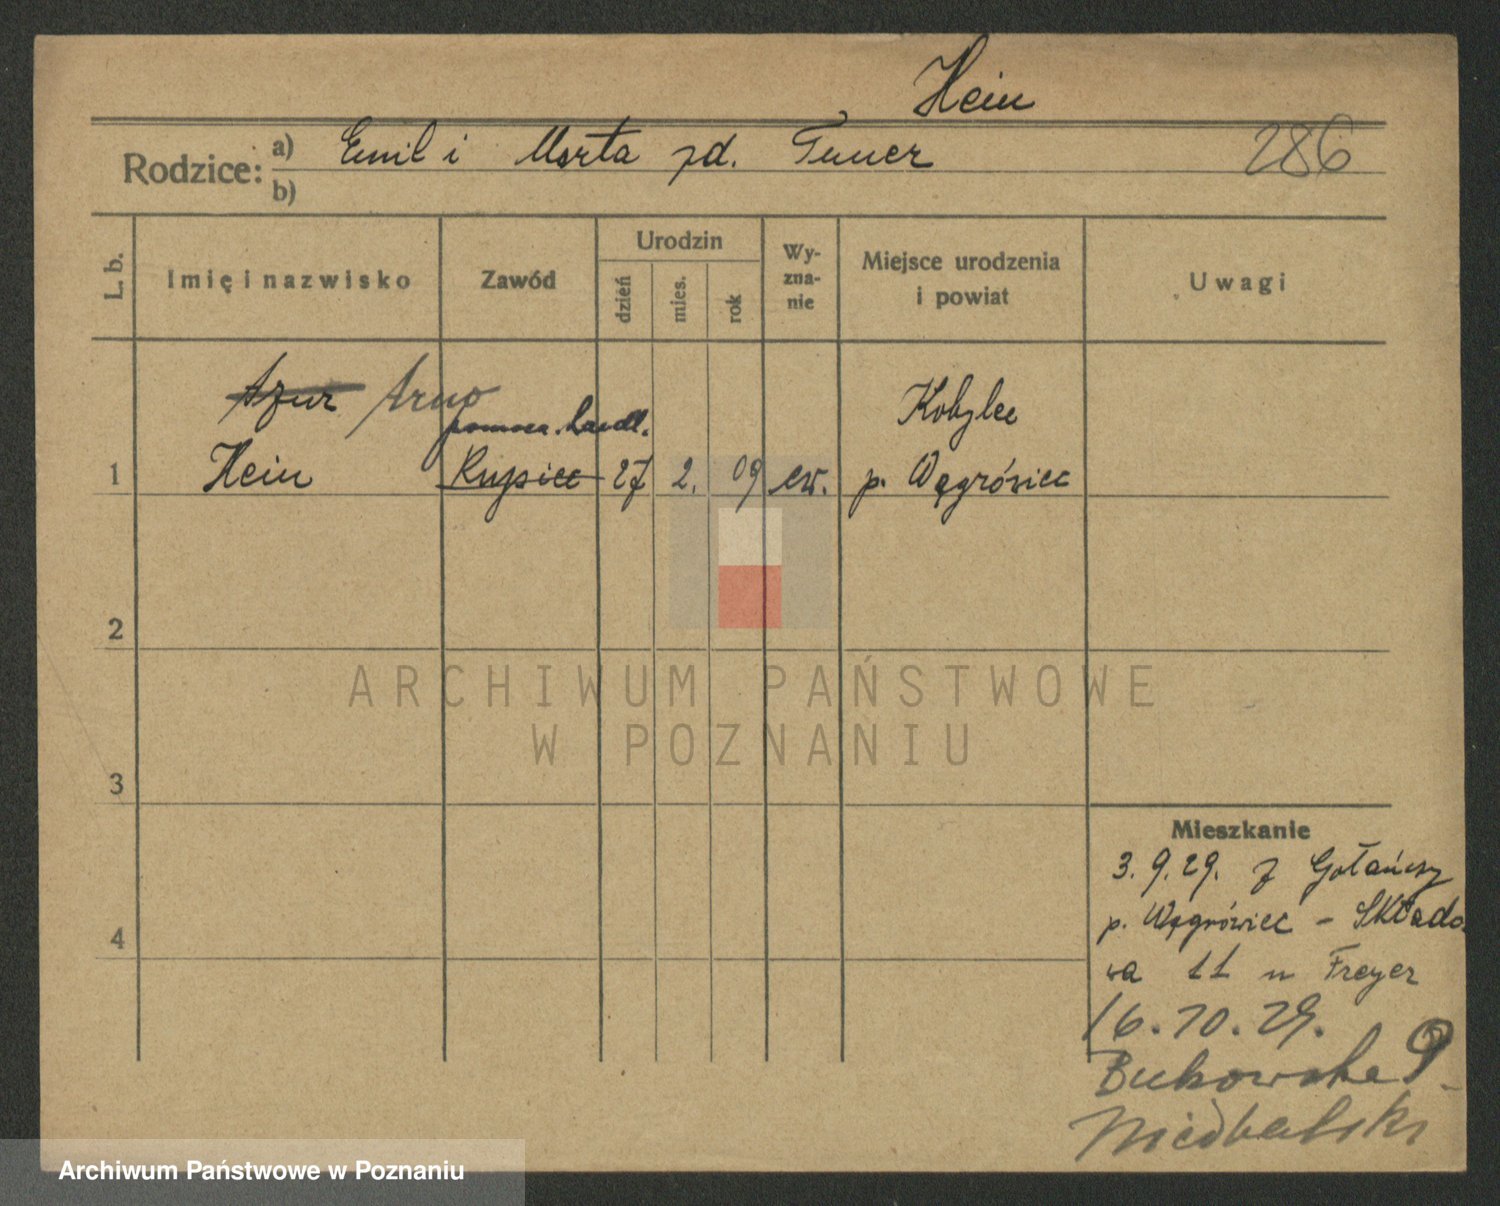 Hein
Rodzice: a) Emil i Marta zd. Tuner 286
b)
L. b. Imię i nazwisko Zawód Urodzin dzień mies. rok Wyznanie Miejsce urodzenia i powiat Uwagi
Azur Arno Kobylec
pomocn. handl.
1 Hein Kupiec 27 2. 09 ew. p. Wągrówiec
2
ARCHIWUM PAŃSTWOWE
W POZNANIU
3
4
Mieszkanie
3. 9. 29. z Gołańczy
p. Wągrówiec - Składo
wa 11 u Freyer
16. 10. 29.
Bukowska 9.
Niedbalski
Archiwum Państwowe w Poznaniu